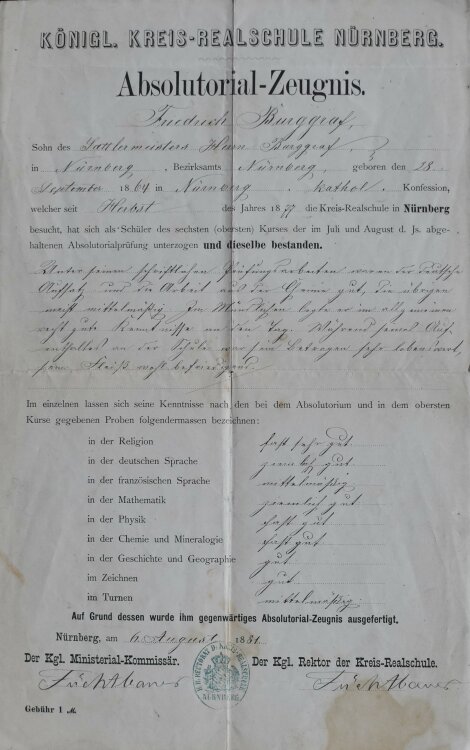 KÖNIGL. KREIS-REALSCHULE NÜRNBERG.
Absolutorial-Zeugnis.
Friedrich Burggraf,
Sohn des Sattlermeisters Herrn Burggraf,
in Nürnberg, Bezirksamts Nürnberg, geboren den 28.
September 1864 in Nürnberg, kathol. Konfession,
welcher seit Herbst des Jahres 1877 die Kreis-Realschule in Nürnberg
besucht, hat sich als Schüler des sechsten (obersten) Kurses der im Juli und August d. Js. abge-
haltenen Absolutorialprüfung unterzogen und dieselbe bestanden.
Unter seinen schriftlichen Prüfungsarbeiten waren der deutsche
Aufsatz und die Arbeit aus der Chemie gut, die übrigen
meist mittelmäßig. Im Mündlichen legte er im allgemeinen
recht gute Kenntnisse an den Tag. Während seines Auf-
enthaltes an der Schule war sein Betragen sehr lobenswert,
sein Fleiß recht befriedigend.
Im einzelnen lassen sich seine Kenntnisse nach den bei dem Absolutorium und in dem obersten
Kurse gegebenen Proben folgendermassen bezeichnen:
in der Religion fast sehr gut
in der deutschen Sprache ziemlich gut
in der französischen Sprache mittelmäßig
in der Mathematik ziemlich gut
in der Physik fast gut
in der Chemie und Mineralogie fast gut
in der Geschichte und Geographie gut
im Zeichnen gut
im Turnen mittelmäßig
Auf Grund dessen wurde ihm gegenwärtiges Absolutorial-Zeugnis ausgefertigt.
Nürnberg, am 6. August 1881.
Der Kgl. Ministerial-Kommissär. Der Kgl. Rektor der Kreis-Realschule.
Füchtbauer Füchtbauer
NÜRNBERG
Gebühr 1 M.